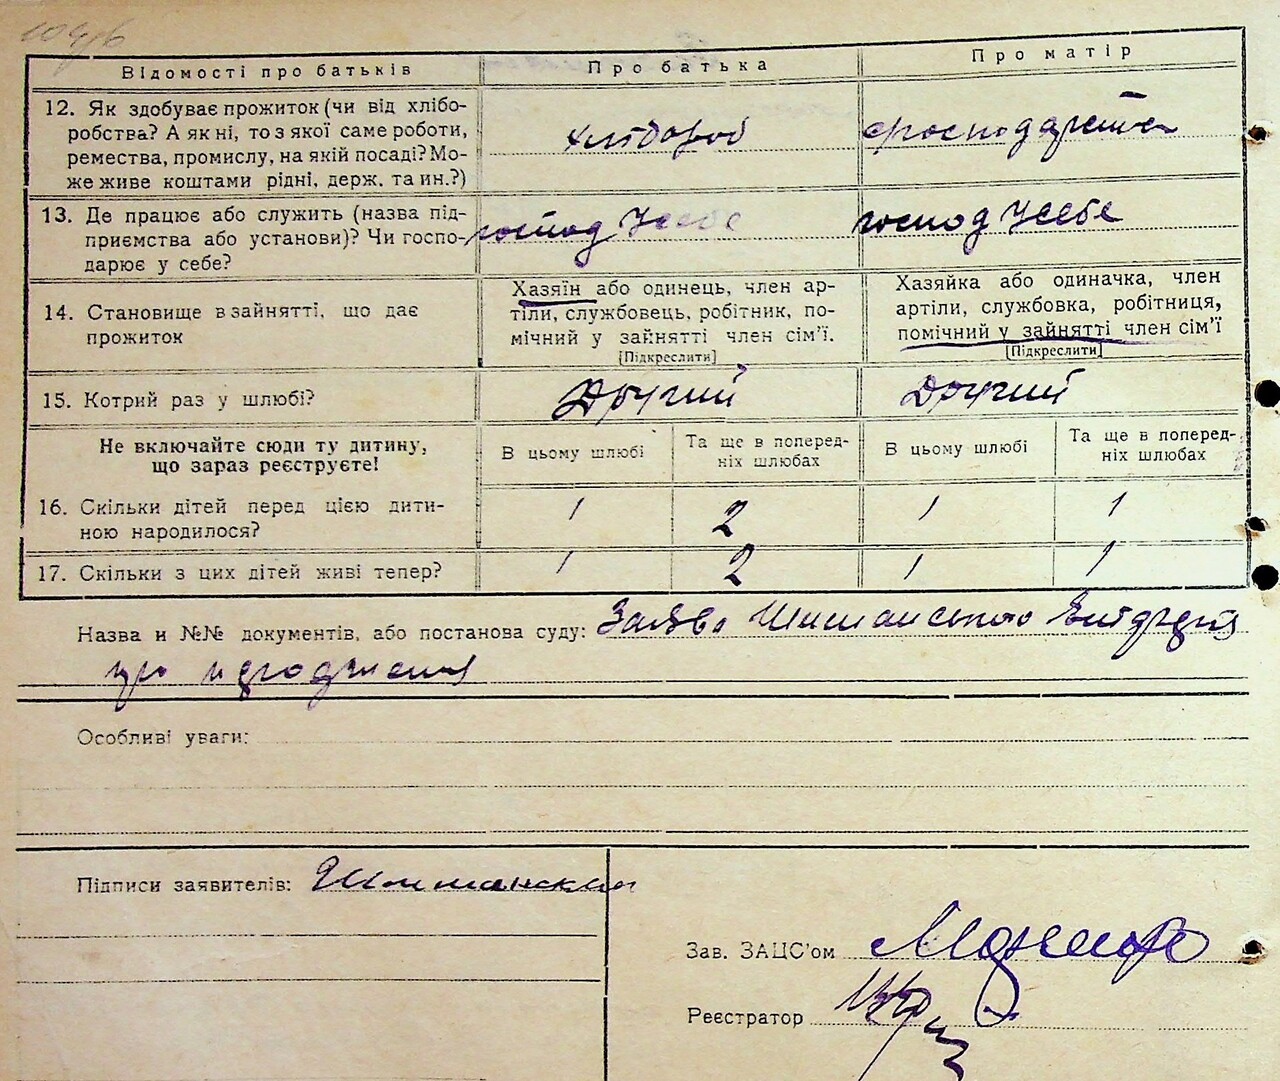 104/6
Відомості про батьків
Про батька
Про матір
12. Як здобуває прожиток (чи від хлібо-
робства? А як ні, то з якої саме роботи,
ремества, промислу, на якій посаді? Мо-
же живе коштами рідні, держ. та ин.?)
хлібороб
13. Де працює або служить (назва під-
приємства або установи)? Чи госпо-
дарює у себе?
господ у себе
господ у себе
14. Становище в зайнятті, що дає
прожиток
Хазяїн або одинець, член ар-
тіли, службовець, робітник, по-
мічний у зайнятті член сім’ї.
[Підкреслити]
Хазяйка або одиначка, член
артіли, службовка, робітниця,
помічний у зайнятті член сім’ї
[Підкреслити]
15. Котрий раз у шлюбі?
Другий
Другий
Не включайте сюди ту дитину,
що зараз реєструєте!
В цьому шлюбі
Та ще в поперед-
ніх шлюбах
В цьому шлюбі
Та ще в поперед-
ніх шлюбах
16. Скільки дітей перед цією дити-
ною народилося?
1 2 1 1
17. Скільки з цих дітей живі тепер?
1 2 1 1
Назва и №№ документів, або постанова суду: Заява
про
Особливі уваги:
Підписи заявителів:
Зав. ЗАЦС’ом
Реєстратор